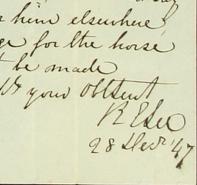 him elsewhere
for the horse
be made
your obt Sert
R E Lee
28 Decr '47